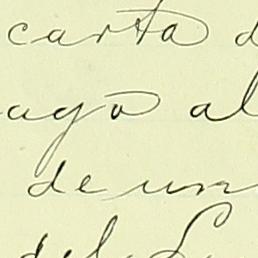 carta d
ago al
de un
del S